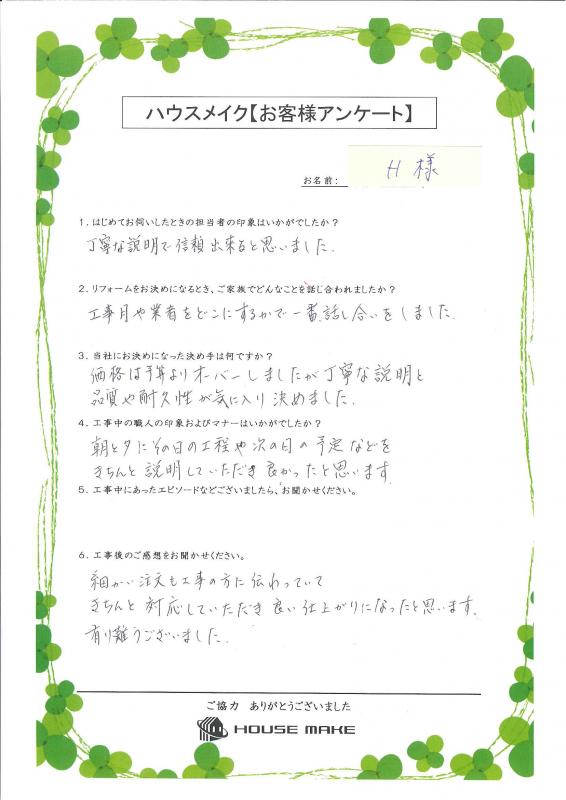 ハウスメイク【お客様アンケート】
お名前：
H 様
1．はじめてお伺いしたときの担当者の印象はいかがでしたか？
丁寧な説明で信頼出来ると思いました。
2．リフォームをお決めになるとき、ご家族でどんなことを話し合われましたか？
工事月や業者をどこにするかで一番話し合いをしました。
3．当社にお決めになった決め手は何ですか？
価格は予算よりオーバーしましたが丁寧な説明と
品質や耐久性が気に入り決めました。
4．工事中の職人の印象およびマナーはいかがでしたか？
朝と夕にその日の工程や次の日の予定などを
きちんと説明していただき良かったと思います
5．工事中にあったエピソードなどございましたら、お聞かせください。
6．工事後のご感想をお聞かせください。
細かい注文も工事の方に伝わっていて
きちんと対応していただき良い仕上がりになったと思います。
有り難うございました。
ご協力 ありがとうございました
HOUSE MAKE